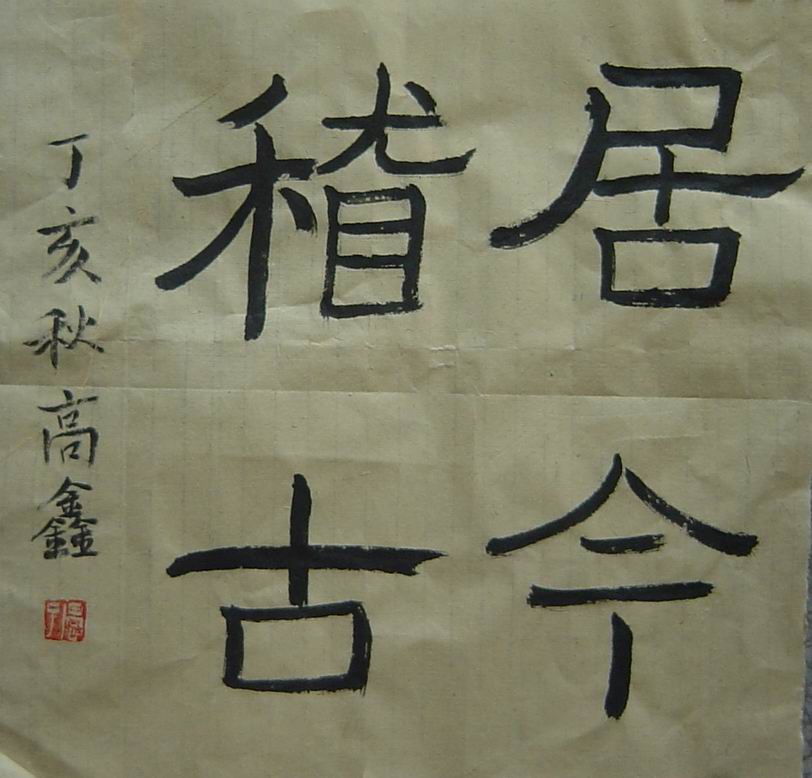 居今
稽古
丁亥秋高鑫